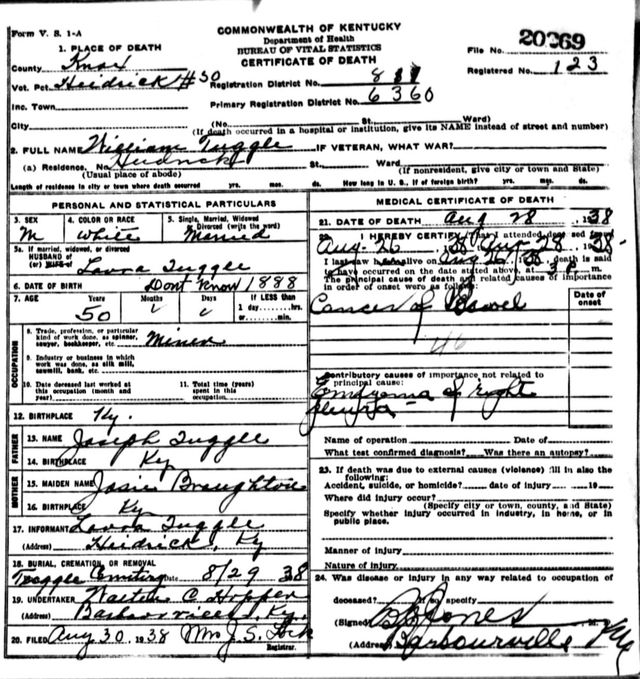 Form V. S. 1-A
COMMONWEALTH OF KENTUCKY
Department of Health
BUREAU OF VITAL STATISTICS
CERTIFICATE OF DEATH
File No. 20369
Registered No. 123
1. PLACE OF DEATH
County Knox
Vot. Pct. Heidrick #30
Registration District No. 811
Inc. Town
Primary Registration District No. 6360
City (No. St. Ward)
(If death occurred in a hospital or institution, give its NAME instead of street and number)
2. FULL NAME William Tuggle IF VETERAN, WHAT WAR?
(a) Residence, No. Heidrick St. Ward
(Usual place of abode) (If nonresident, give city or town and State)
Length of residence in city or town where death occurred yrs. mos. ds. How long in U. S., if of foreign birth? yrs. mos. ds.
PERSONAL AND STATISTICAL PARTICULARS
3. SEX M
4. COLOR OR RACE White
5. Single, Married, Widowed Divorced (write the word) Married
5a. If married, widowed, or divorced
HUSBAND of
(or) WIFE of Laura Tuggle
6. DATE OF BIRTH Dont Know 1888
7. AGE Years Months Days IF LESS than
50 1 day....hrs.
or....min.
8. Trade, profession, or particular
kind of work done, as spinner,
sawyer, bookkeeper, etc. Miner
9. Industry or business in which
work was done, as silk mill,
sawmill, bank, etc.
10. Date deceased last worked at
this occupation (month and
year)
11. Total time (years)
spent in this
occupation
12. BIRTHPLACE Ky.
FATHER
13. NAME Joseph Tuggle
14. BIRTHPLACE Ky
MOTHER
15. MAIDEN NAME Josie Broughton
16. BIRTHPLACE Ky
17. INFORMANT Laura Tuggle
(Address) Heidrick, Ky
18. BURIAL, CREMATION, OR REMOVAL
Tuggle Cemitery Date 8/29 38
19. UNDERTAKER Walter C. Hopper
Barbourville, Ky.
20. FILED Aug 30, 1938 Mrs J. S. Lock
Registrar.
MEDICAL CERTIFICATE OF DEATH
21. DATE OF DEATH Aug 28 1938
22. I HEREBY CERTIFY, That I attended deceased from
Aug-26 38 Aug-28 38
I last saw h alive on Aug 26 38 death is said
to have occurred on the date stated above, at 3 m.
The principal cause of death and related causes of importance
in order of onset were as follows:
Date of
onset
Cancer of Bowel
46
Contributory causes of importance not related to
principal cause:
Empyema of right
pleura
Name of operation Date of
What test confirmed diagnosis? Was there an autopsy?
23. If death was due to external causes (violence) fill in also the
following:
Accident, suicide, or homicide? date of injury 19
Where did injury occur?
(Specify city or town, county, and State)
Specify whether injury occurred in industry, in home, or in
public place.
Manner of injury
Nature of injury
24. Was disease or injury in any way related to occupation of
deceased?
(Signed) Jones M.
(Address) Barbourville Ky